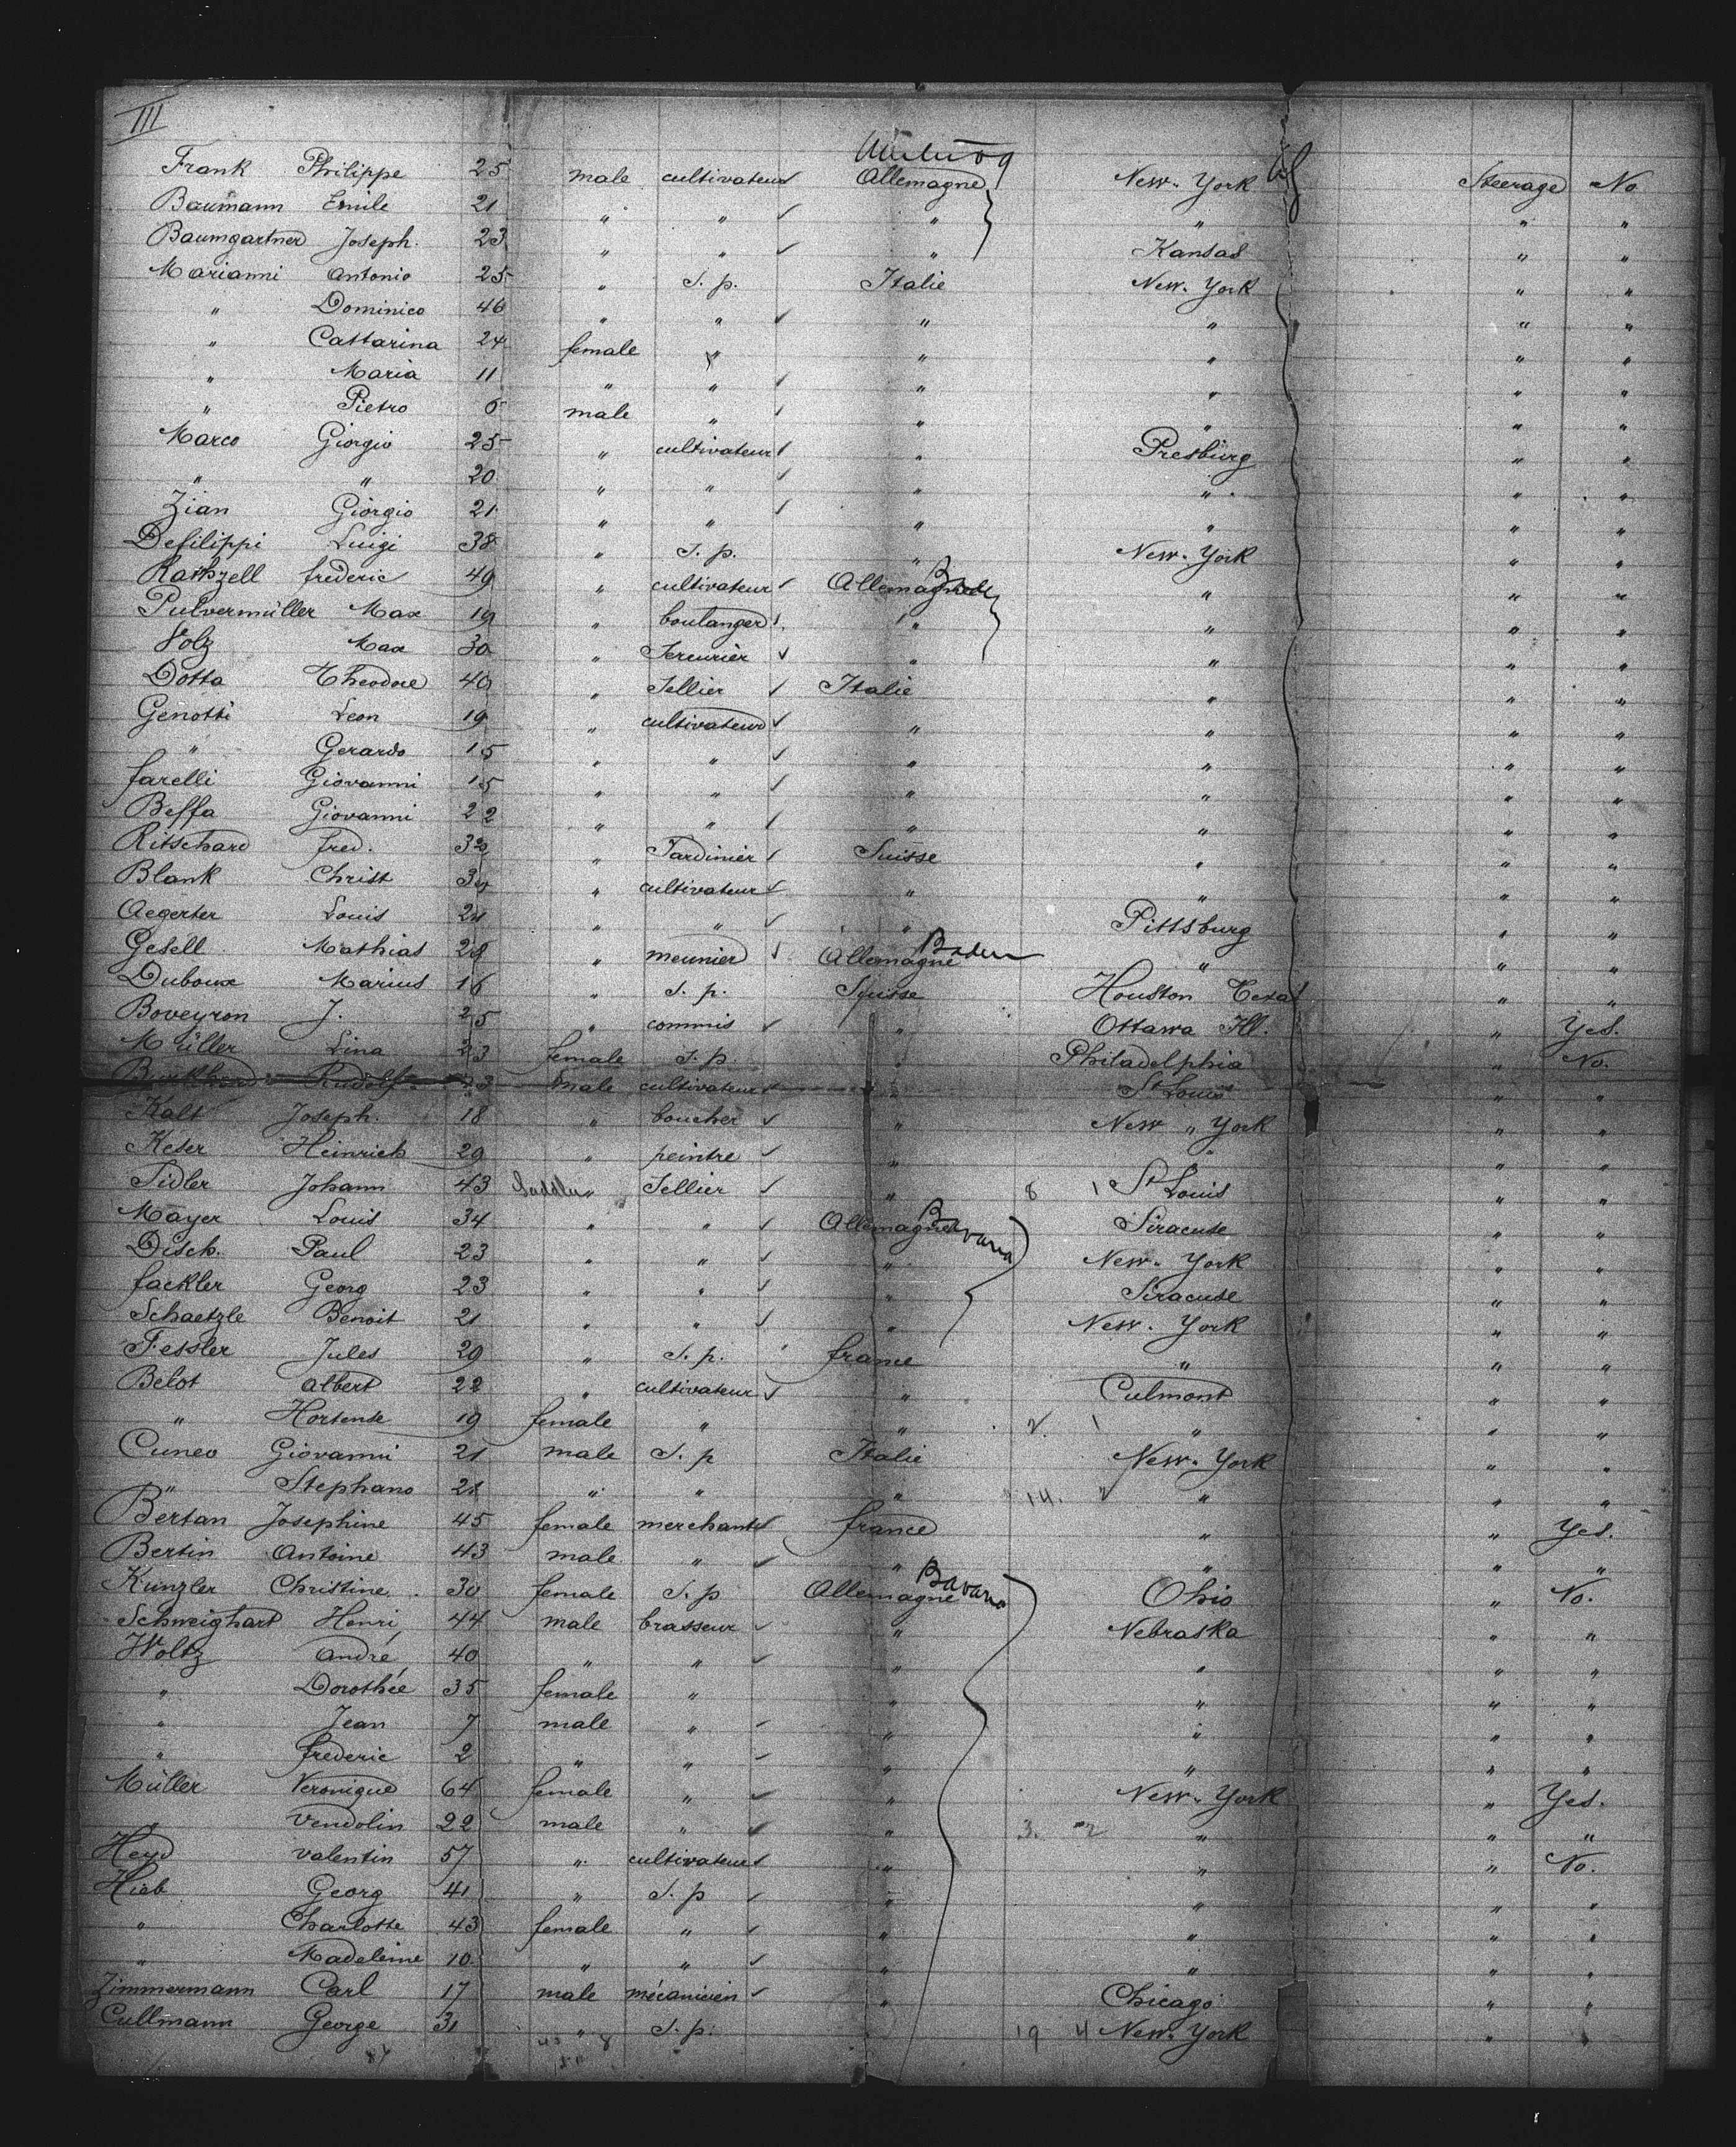 III
Frank Philippe 25 male cultivateur Allemagne New-York Steerage No
Baumann Emile 21 " " " " " "
Baumgartner Joseph. 23 " " " Kansas " "
Marianni Antonio 25 " S. p. Italie New-York " "
" Dominico 46 " " " " " "
" Cattarina 24 female " " " " "
" Maria 11 " " " " " "
" Pietro 6 male " " " " "
Marco Giorgio 25 " cultivateur " Presburg " "
" " 20 " " " " " "
Zian Giorgio 21 " " " " " "
Defilippi Luigi 38 " S. p. " New-York " "
Rathzell frederic 49 " cultivateur Allemagne " " "
Pulvermüller Max 19 " boulanger " " " "
Volz Max 30 " Sereurier " " " "
Dotta Theodore 40 " Sellier Italie " " "
Genotti Leon 19 " cultivateur " " " "
" Gerardo 15 " " " " " "
farelli Giovanni 15 " " " " " "
Beffa Giovanni 22 " " " " " "
Ritschard fred. 32 " Jardinier Suisse " " "
Blank Christ " cultivateur " " " "
Aegerter Louis 24 " " " Pittsburg " "
Gesell Mathias 28 " meunier Allemagne Baden " " "
Duboux Marius 16 " S. p. Suisse Houston Texas " "
Boveyron J. 25 " commis " Ottawa Ill. " Yes.
Müller Lina 23 female S. p. " Philadelphia " No.
Rudolf 23 male cultivateur " St Louis " "
Kalt Joseph. 18 " boucher " New " York " "
Keser Heinrich 29 " peintre " " " "
Sidler Johann 43 " Sellier " 8 1 St Louis " "
Mayer Louis 34 " " Allemagne Bavaria Siracuse " "
Disch. Paul 23 " " " New-York " "
fackler Georg 23 " " " Siracuse " "
Schaetzle Benoit 21 " " " New-York " "
Fessler Jules 29 " S. p. france " " "
Belot albert 22 " cultivateur " Culmont " "
" Hortense 19 female " " 2. 1 " " "
Cuneo Giovanni 21 male S. p Italie New-York " "
" Stephano 21 " " " 14. " " "
Bertan Josephine 45 female merchant france " " Yes.
Bertin Antoine 43 male " " " " "
Künzler Christine 30 female S. p Allemagne Bavaria Ohio " No.
Schweighart Henri 44 male brasseur " Nebraska " "
Woltz André 40 " " " " " "
" Dorothée 35 female " " " " "
" Jean 7 male " " " " "
" frederic 2 " " " " " "
Müller Veronique 64 female " " New-York " Yes.
" Vendolin 22 male " " 3. 2 " " "
Heyd valentin 57 " cultivateur " " " No.
Hieb Georg 41 " S. p " " " "
" Charlotte 43 female " " " " "
" Madeleine 10 " " " " " "
Zimmermann Carl 17 male mécanicien " Chicago " "
Cullmann George 31 " S. p. 19 4 New-York " "